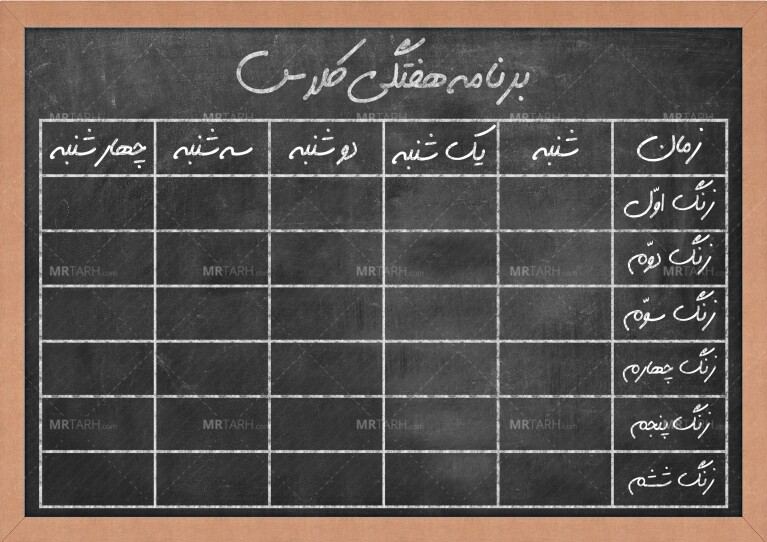 برنامه هفتگی کلاس
زمان شنبه یک شنبه دو شنبه سه شنبه چهار شنبه
زنگ اوّل
زنگ دوّم
زنگ سوّم
زنگ چهارم
زنگ پنجم
زنگ ششم
MRTARH.com MRTARH.com MRTARH.com MRTARH.com MRTARH.com
MRTARH.com MRTARH.com MRTARH.com MRTARH.com MRTARH.com
MRTARH.com MRTARH.com MRTARH.com MRTARH.com MRTARH.com